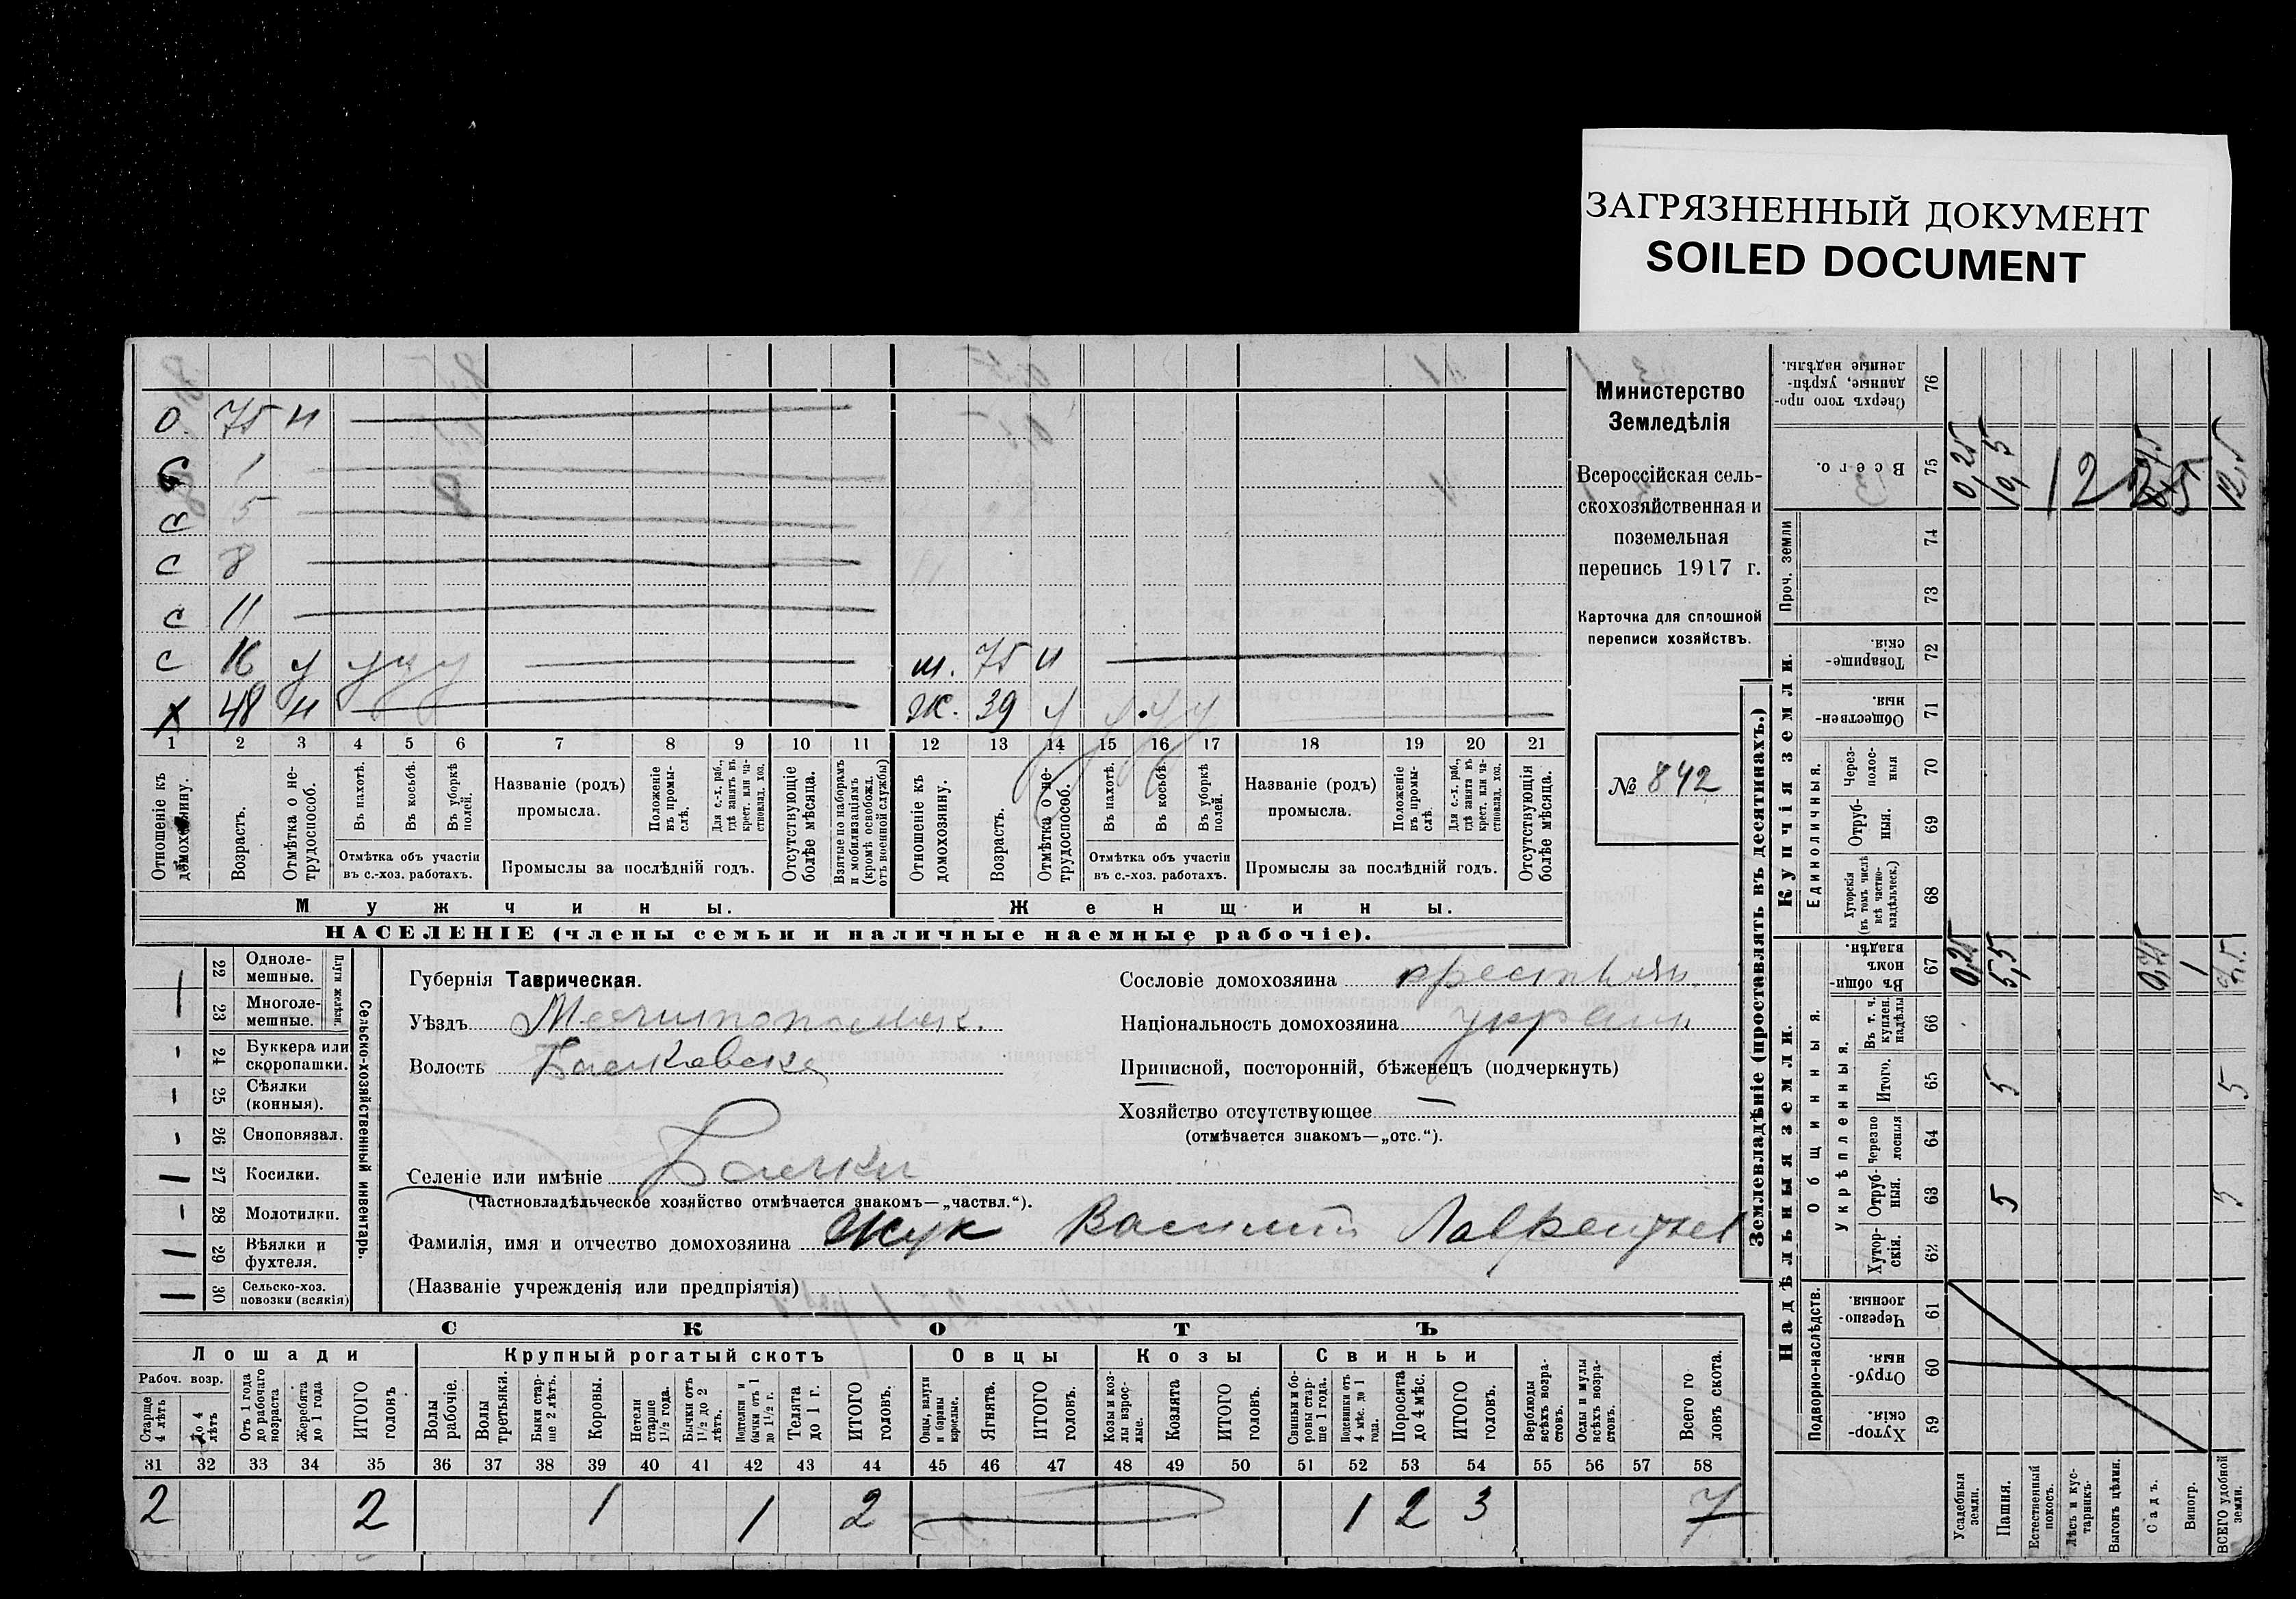 ЗАГРЯЗНЕННЫЙ ДОКУМЕНТ
SOILED DOCUMENT
О. 75 н
с 1
с 5
с 8
с 11
с 16 у у у у
ш. 75 н
х 48 н
ж. 39 у у у у
1 2 3 4 5 6 7 8 9 10 11 12 13 14 15 16 17 18 19 20 21
Отношеніе къ домохозяину.
Возрастъ.
Отмѣтка о нетрудоспособ.
Въ пахотѣ.
Въ косьбѣ.
Въ уборкѣ полей.
Отмѣтка объ участіи въ с.-хоз. работахъ.
Названіе (родъ) промысла.
Положеніе въ промыслѣ.
Для с.-х. раб., гдѣ занятъ въ крест. или частновлад. хоз.
Промыслы за послѣдній годъ.
Отсутствующіе болѣе мѣсяца.
Взятые по наборамъ и мобилизаціямъ (кромѣ освобожд. отъ военной службы)
Отношеніе къ домохозяину.
Возрастъ.
Отмѣтка о нетрудоспособ.
Въ пахотѣ.
Въ косьбѣ.
Въ уборкѣ полей.
Отмѣтка объ участіи въ с.-хоз. работахъ.
Названіе (родъ) промысла.
Положеніе въ промыслѣ.
Для с.-х. раб., гдѣ занята въ крест. или частновлад. хоз.
Промыслы за послѣдній годъ.
Отсутствующія болѣе мѣсяца.
Мужчины.
Женщины.
НАСЕЛЕНІЕ (члены семьи и наличные наемные рабочіе).
Министерство
Земледѣлія
Всероссійская сель-
скохозяйственная и
поземельная
перепись 1917 г.
Карточка для сплошной
переписи хозяйствъ.
№ 842
22 Однолемешные.
23 Многолемешные.
Плуги желѣзн.
24 Буккера или скоропашки.
25 Сѣялки (конныя).
26 Сноповязал.
27 Косилки.
28 Молотилки.
29 Вѣялки и фухтеля.
30 Сельско-хоз. повозки (всякія)
Сельско-хозяйственный инвентарь.
Губернія Таврическая.
Уѣздъ Мелитопольск.
Волость Балковска
Селеніе или имѣніе Балки
(Частновладѣльческое хозяйство отмѣчается знакомъ—„частвл.“).
Фамилія, имя и отчество домохозяина Жук Василій Лаврентьев
(Названіе учрежденія или предпріятія)
Сословіе домохозяина крестьян.
Національность домохозяина украин
Приписной, посторонній, бѣженецъ (подчеркнуть)
Хозяйство отсутствующее —
(отмѣчается знакомъ—„отс.“).
СКОТЪ
Лошади
Крупный рогатый скотъ
Овцы
Козы
Свиньи
Рабоч. возр.
Старше 4 лѣтъ
До 4 лѣтъ
Отъ 1 года до рабочаго возраста
Жеребята до 1 года
ИТОГО головъ
Волы рабочіе.
Волы третьяки.
Быки старше 2 лѣтъ.
Коровы.
Нетели старше 1½ года.
Бычки отъ 1½ до 2 лѣтъ.
Подтелки и бычки отъ 1 до 1½ г.
Телята до 1 г.
ИТОГО головъ.
Овцы, валухи и бараны взрослые.
Ягнята.
ИТОГО головъ.
Козы и козлы взрослые.
Козлята
ИТОГО головъ.
Свиньи и боровы старше 1 года.
Подсвинки отъ 4 мѣс. до 1 года.
Поросята до 4 мѣс.
ИТОГО головъ.
Верблюды всѣхъ возрастовъ.
Ослы и мулы всѣхъ возрастовъ.
Всего головъ скота.
31 32 33 34 35 36 37 38 39 40 41 42 43 44 45 46 47 48 49 50 51 52 53 54 55 56 57 58
2 2 1 1 2 1 2 3 7
Землевладѣніе (проставлять въ десятинахъ.)
Надѣльныя земли.
Купчія земли.
Проч. земли
Сверхъ того проданные, укрѣпленные надѣлы. 76
Всего. 75 0,25 19,5 12 12,5
74
73
Товарищескія. 72
Общественныя. 71
Единоличныя.
Черезполосныя 70
Отрубныя. 69
Хуторскія (въ томъ числѣ всѣ частновладѣльческ.) 68
Общинныя.
Въ общинномъ владѣн. 67 0,25 5,5 0,75 1
Укрѣпленныя.
Въ т. ч. куплен. надѣлы 66
Итого. 65 5 5
Черезполосныя 64
Отрубныя. 63 5 5
Хуторскія. 62
Подворно-наслѣдств.
Черезполосныя. 61
Отрубныя. 60
Хуторскія. 59
Усадебныя земли.
Пашня.
Естественный покосъ.
Лѣсъ и кустарникъ.
Выгонъ цѣлин.
Садъ.
Виногр.
ВСЕГО удобной земли.